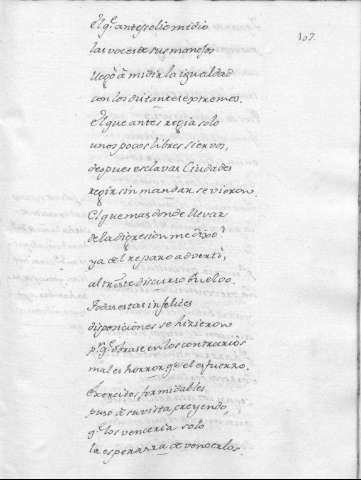 107.
el q.e antes solo midio
las voces de sus manosos
llegò à midir la igualdad
con los distantes extremos.
el que antes regia solo
unos pocos libres siervos,
despues esclavas Ciudades
regir sin mandar, se vieron
El que mas donde llevar
de la digresion me dexo?
ya del reparo advertì,
al triste discurso buelvo.
Todas estas infelices
disposiciones se hizieron
p.r q.e obrase en los contrarios
mas el horror, q.e el esfuerzo.
Exercitos formidables
puso à su vista, creyendo
q.e los venceria solo
la esperanza de vencerlos.